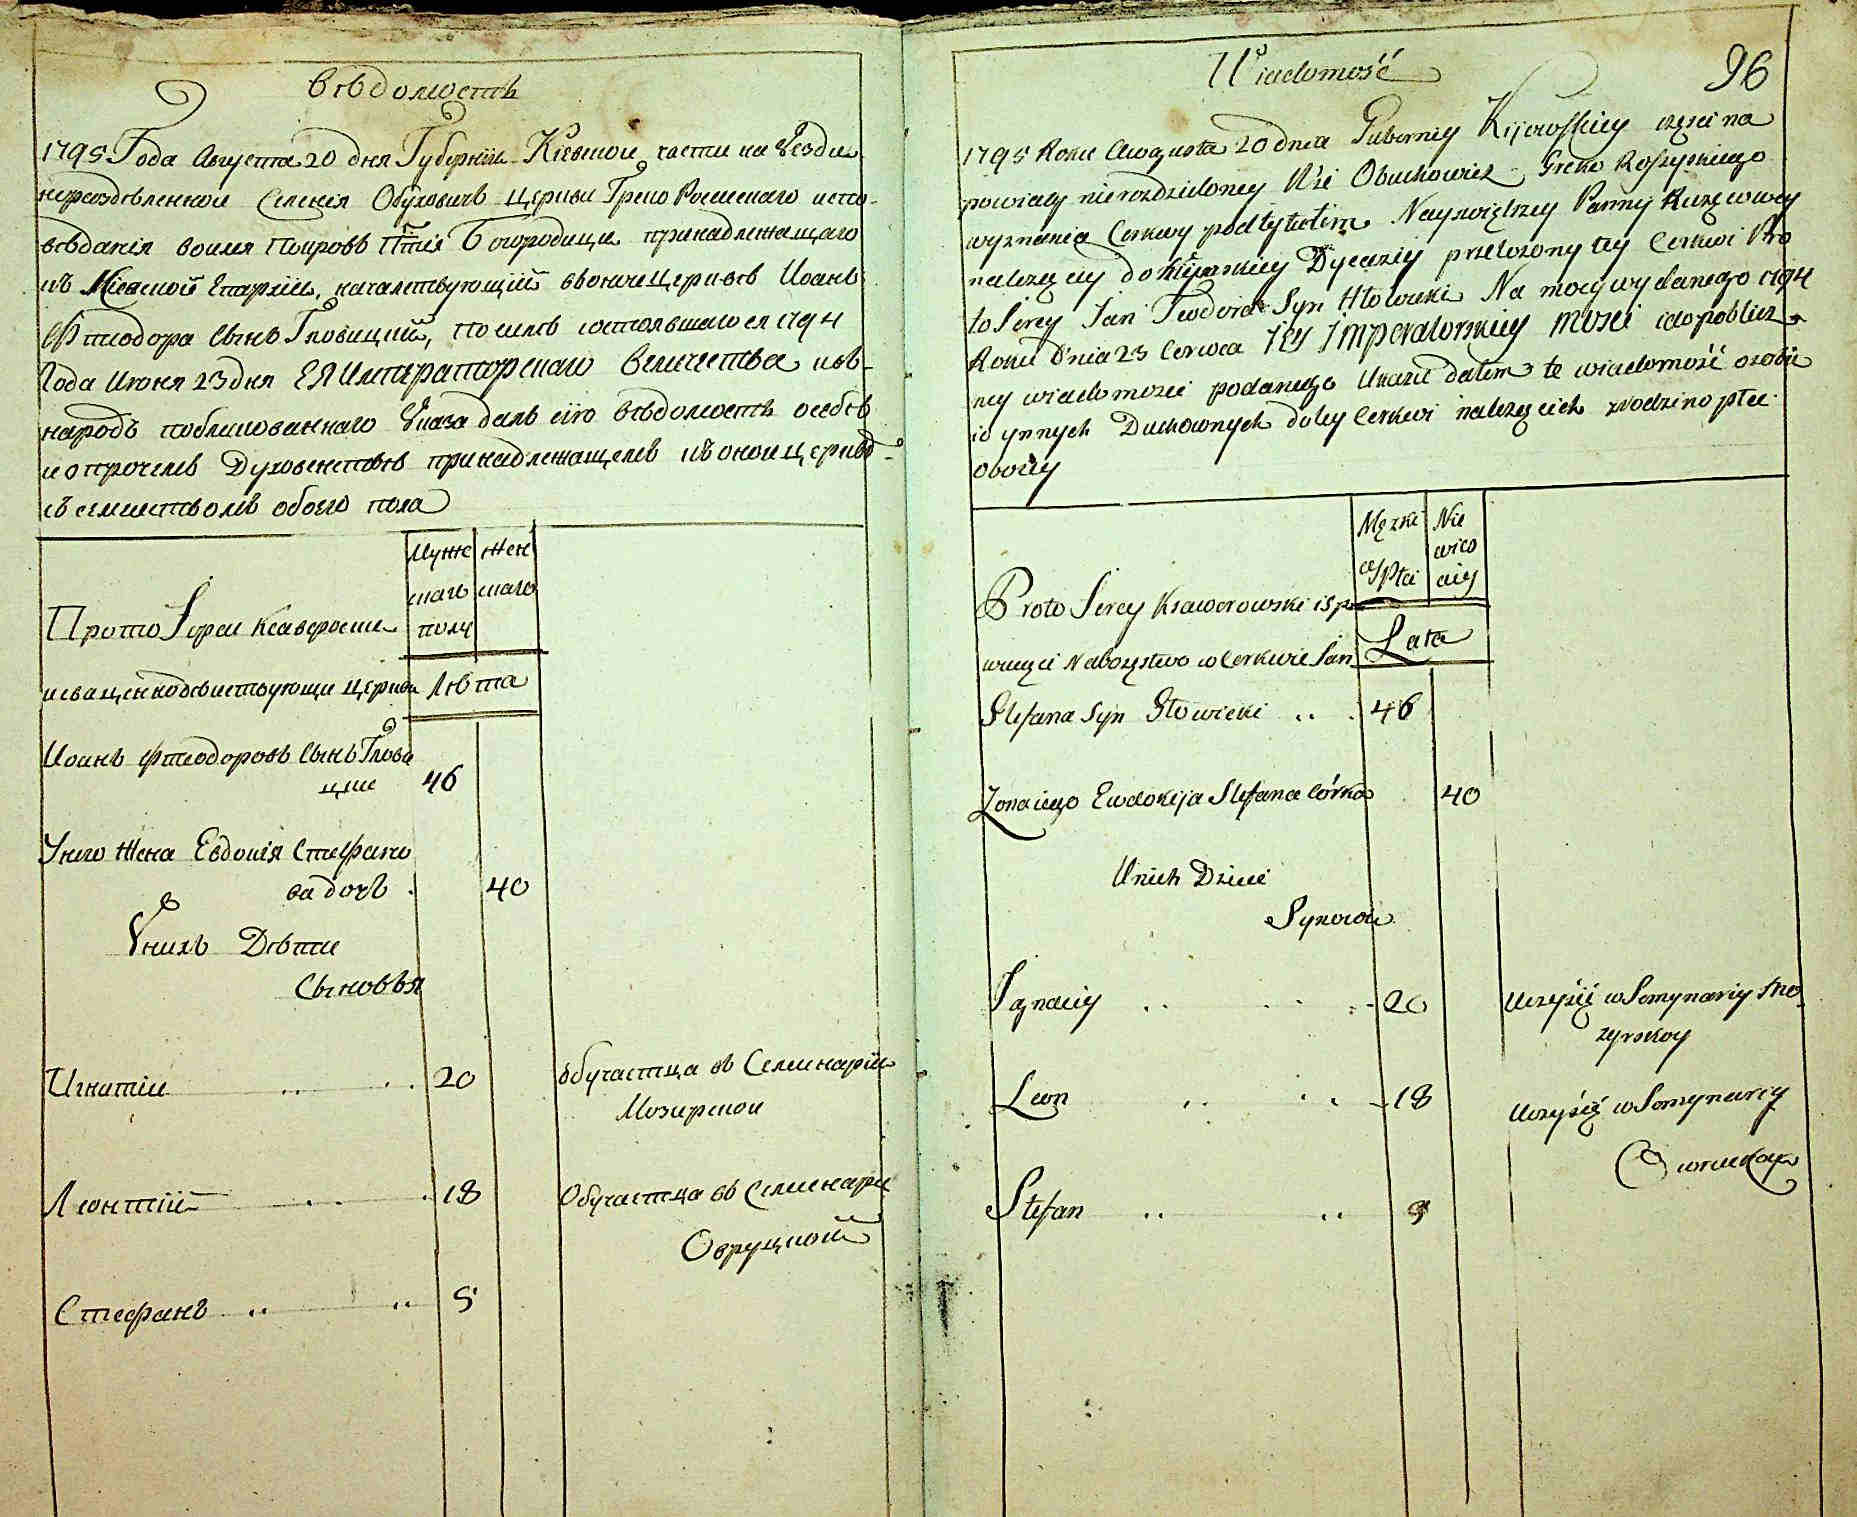 Вѣдомость
1795 Года Августа 20 дня Губернїи Кіевской части на Уезди
неразделенной Селенія Обуховичъ Церкви Греко Россійскаго испо-
вѣданія воимя Покровъ Пресвятыя Богородицы принадлежащаго
къ Кіевской Епархїи, началствующїй въоноицеркве Иоанъ
Фтеодора сынъ Гловицкий, по силѣ состоявшагося 1794
Года Июня 23 дня ЕЯ Императорскаго Величества въ-
народъ публикованнаго Указа далъ сїю вѣдомость о себѣ
и опрочемъ Духовенствѣ принадлежащемъ къ оной церквѣ
съ семиствомъ обоего пола
Мужс Жен
каго скаго
полу
Прото Іереи Ксаверовски
и священнодѣиствующи церкви Лѣта
Иоанъ Фтеодоровъ сынъ Глови
цки 46
Унего жена Евдокія Стефано
ва дочъ . 40
Унихъ Дѣти
Сыновья
Игнатіи .. . . 20 обучаетца въ Семинарїи
Мозирской
Леонтїй . . . 18 Обучаетца въ Семинари
Овруцкой
Стефанъ .. .. 5
Wiadomość 96
1795 Roku Awgusta 20 dnia Guberniy Kijowskiey części na
powiaty nierozdzieloney Wsi Obuchowicz Greko Rossyskiego
wyznania Cerkwy pod tytułem Nayswiętszey Panny
należącey do Kijowskiey Dyecezij przełożony tey Cerkwi Pro
to Jerey Jan Teodora Syn Hłowicki Na mocy wydanego 1794
Roku Dnia 23 Czerwca JEY Imperatorskiey Mosci
ney wiadomosci podanego Ukazu dałem te wiadomość o sobie
i o ynnych Duchownych do tey Cerkwi należących zrodzino płci
oboiey
Męzki Nie
ey Płci wieś
ciey
Proto Jerey Ksawerowski i sp
Lata
wuiący Nabożystwo w Cerkwie Jan
Stefana Syn Głowicki .. . 46
Zona iego Ewdokija Stefana córka 40
U nich Dzieci
Synowie
Ignaciy .. . . . 20 uczyśię w Semynariy Mo
zyrskoy
Leon .. . . 18 uczyśię w Semynariy
Owruckoy
Stefan .. .. 9